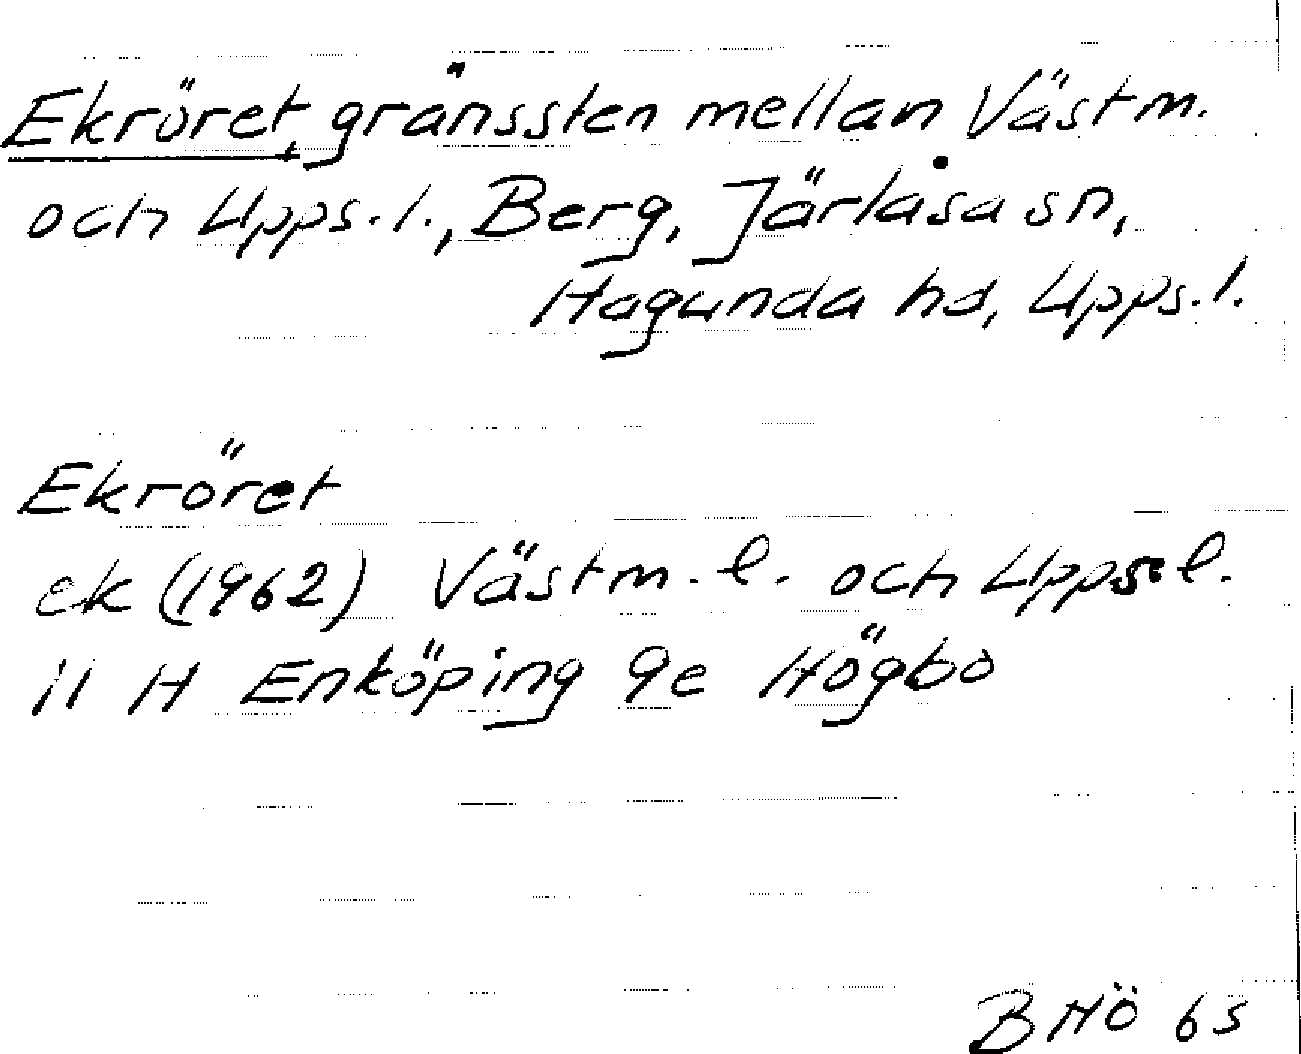 Ekröret, gränssten mellan Västm.
och Upps. l., Berg, Järlåsa sn,
Hagunda hd, Upps. l.
Ekröret
ek (1962) Västm. l. och Upps. l.
11 H Enköping 9e Högbo
BHÖ 65